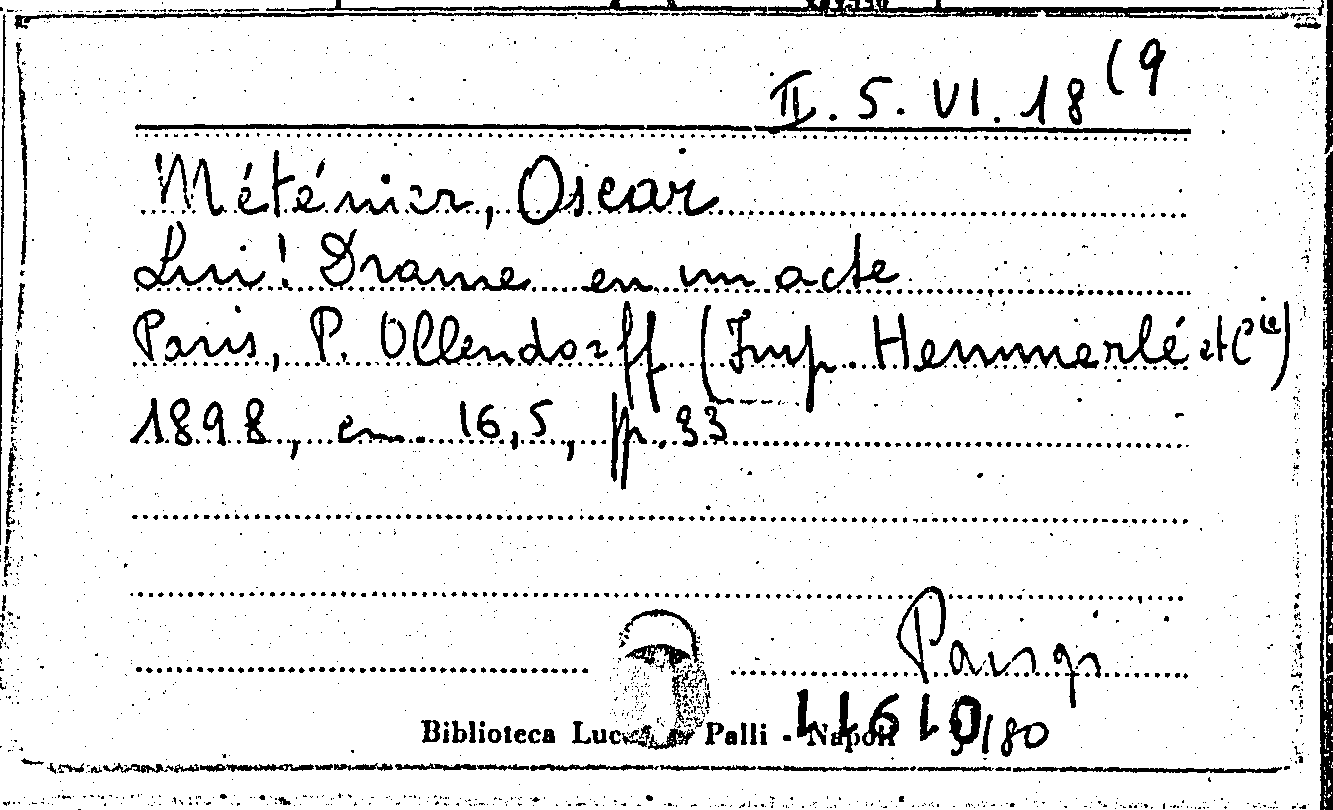 II. 5. VI. 18 (9
Méténier, Oscar
Lui! Drame en un acte
Paris, P. Ollendorff (Imp. Hemmerlé et Cie)
1898, cm. 16,5, pp. 33
Biblioteca Palli - Napoli
/80